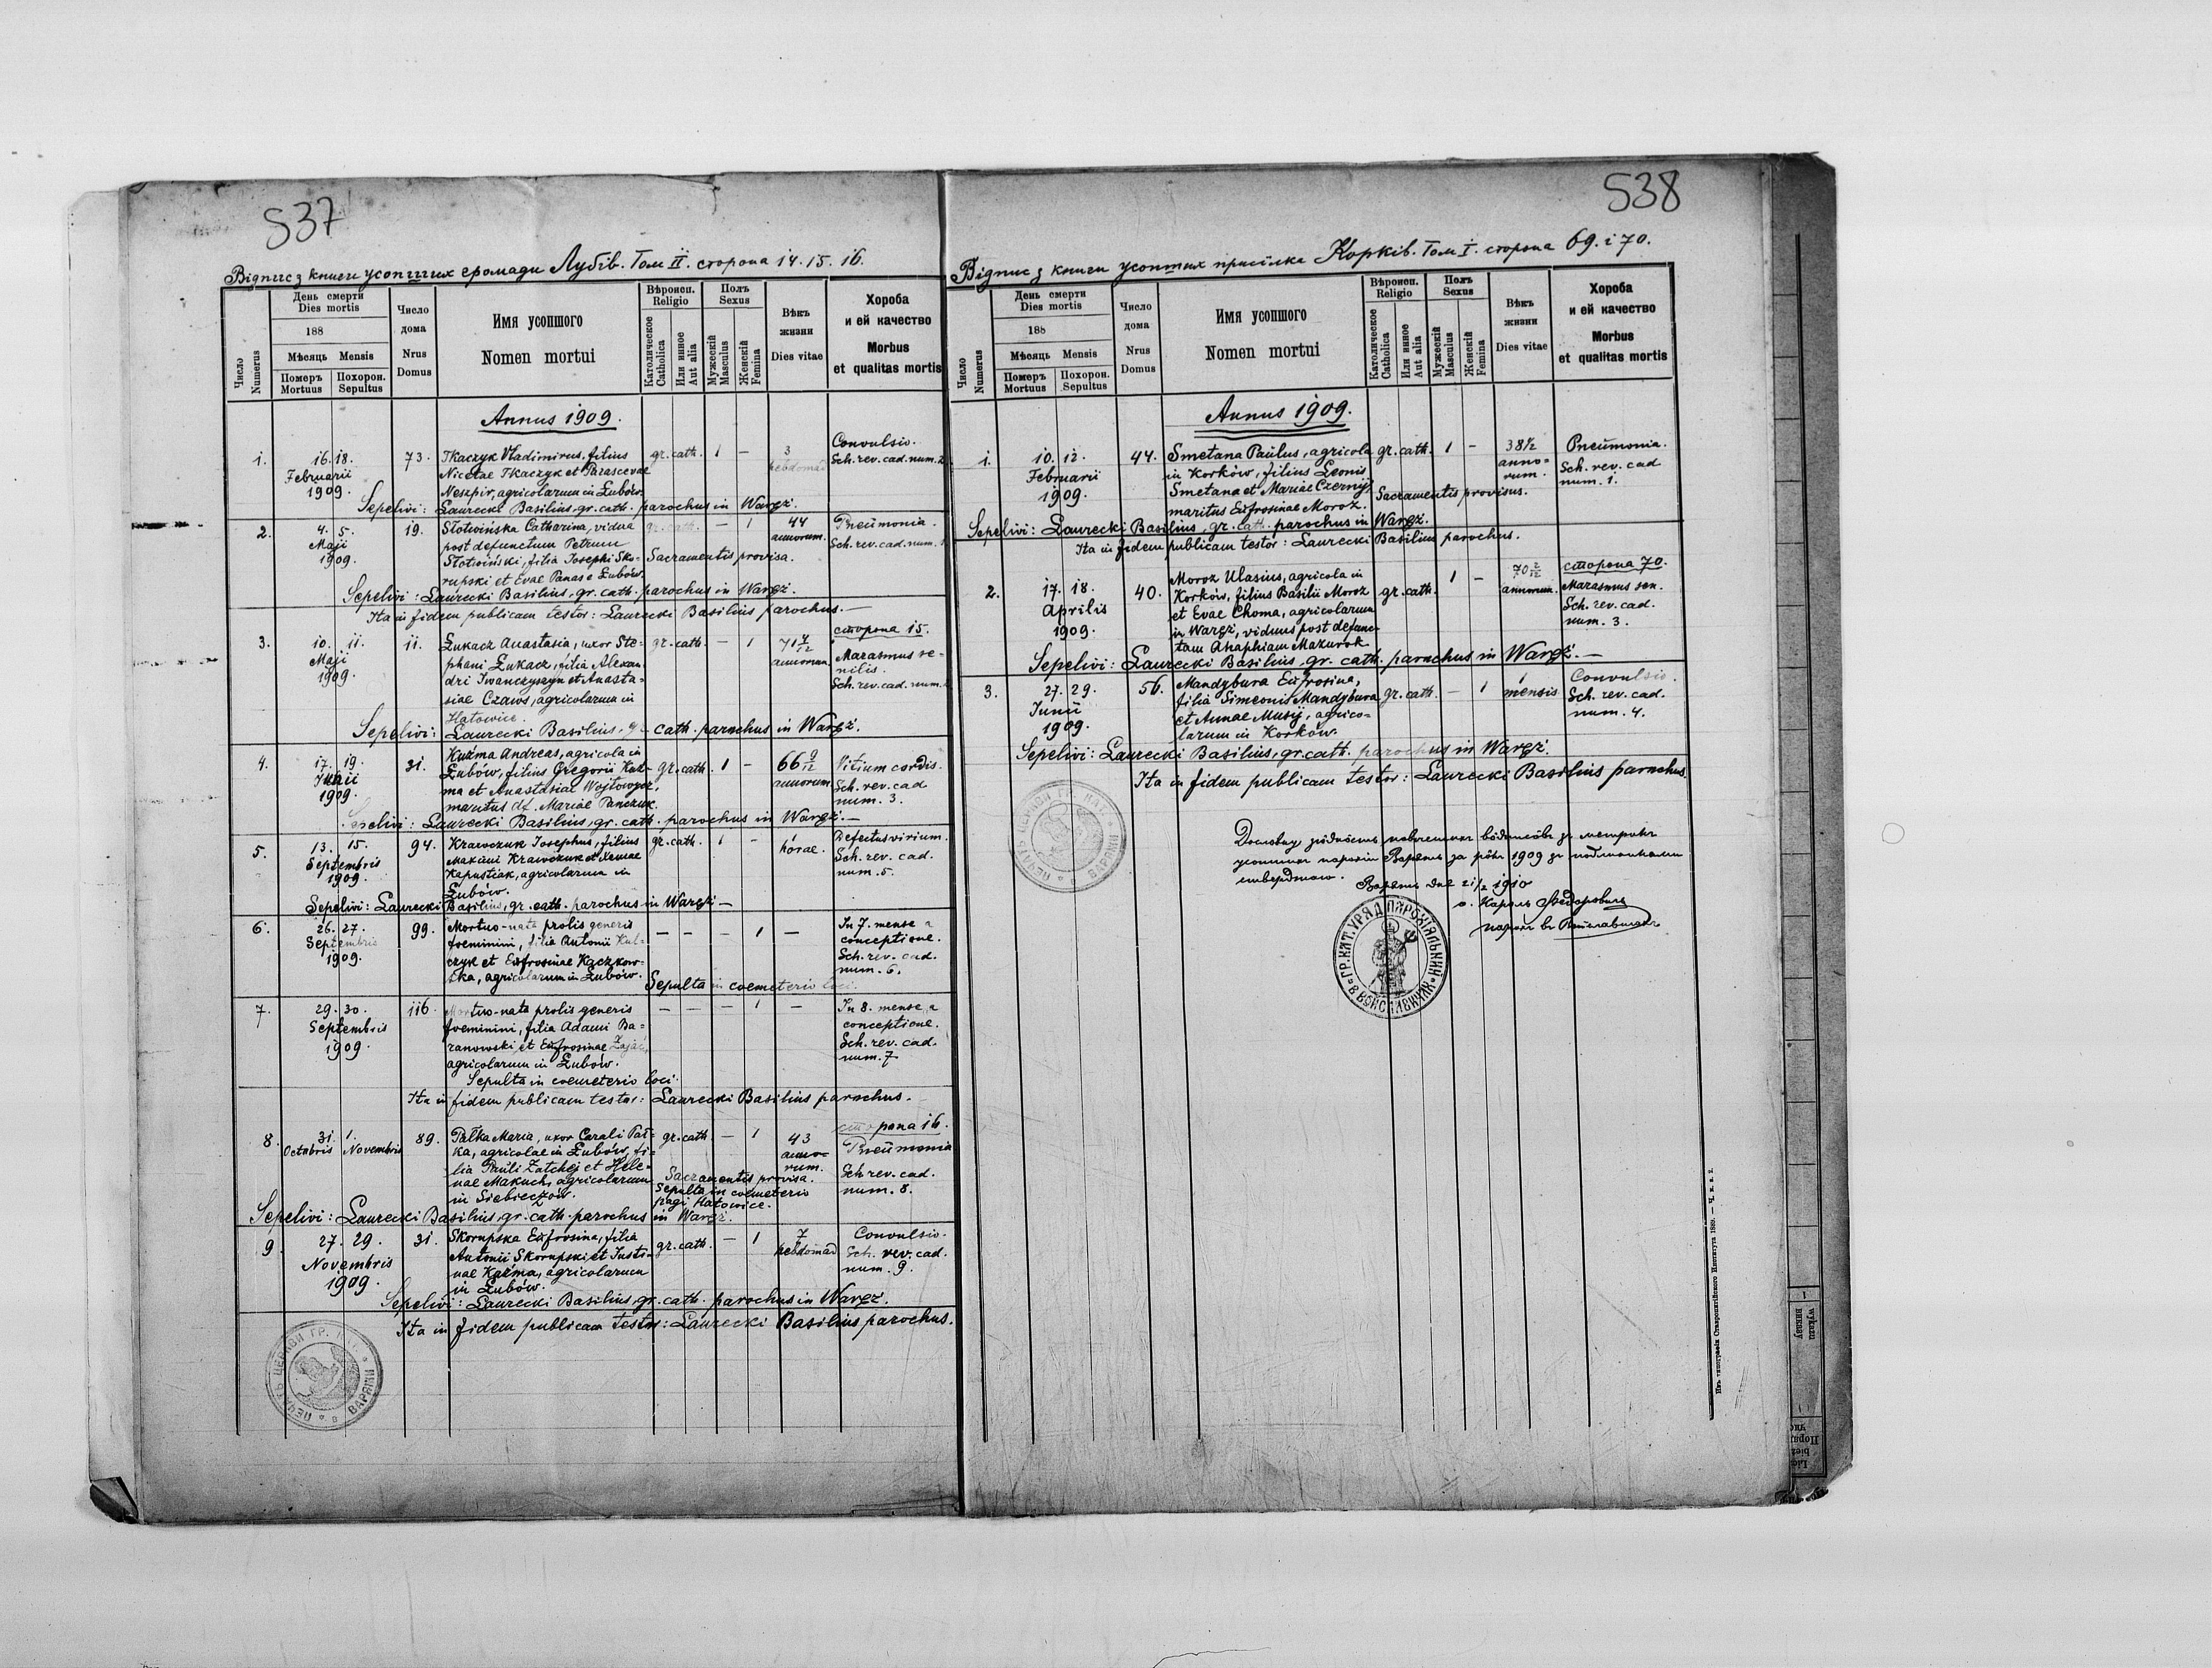 537
Відпис з книги усопших громади Лубів. Том II. сторона 14. 15. 16.
Число Numerus
День смерти Dies mortis
188
Мѣсяць Mensis
Померъ Mortuus
Похорон. Sepultus
Число дома Nrus Domus
Имя усопшого Nomen mortui
Вѣроисп. Religio
Католическое Catholica
Или инное Aut alia
Полъ Sexus
Мужескій Masculus
Женскій Femina
Вѣкъ жизни Dies vitae
Хороба и ей качество Morbus et qualitas mortis
Annus 1909.
1. 16. 18. 73. Tkaczyk Vladimirus, filius gr. cath. 1 – 3 Convulsio.
Februarii Nicetae Tkaczyk et Parascevae hebdomad Sch. rev. cad. num. 2
1909. Neszpir, agricolarum in Łubów.
Sepelivi: Laurecki Basilius, gr. cath. parochus in Waręż.
2. 4. 5. 19. Słotwińska Catharina, vidua gr. cath. – 1 44 Pneumonia.
Maji post defunctum Petrum annorum. Sch. rev. cad. num. 1
1909. Słotwiński, filia Josephi Sko- Sacramentis provisa.
rupski et Evae Panas e Łubów.
Sepelivi: Laurecki Basilius, gr. cath. parochus in Waręż.
Ita in fidem publicam testor: Laurecki Basilius parochus. —
сторона 15.
3. 10. 11. 11. Łukacz Anastasia, uxor Ste- gr. cath. – 1 71 4/12 Marasmus se-
Maji phani Łukacz, filia Alexan- annorum nilis.
1909. dri Iwanczyszyn et Anasta- Sch. rev. cad. num.
siae Czaws, agricolarum in
Hatowice.
Sepelivi: Laurecki Basilius, gr. cath. parochus in Waręż.
4. 17. 19. 31. Kuźma Andreas, agricola in
Łubów, filius Gregorii Kuź- gr. cath. 1 – 66 9/12 Vitium cordis.
1909. ma et Anastasiae Wojtowycz, annorum Sch. rev. cad
maritus df. Mariae Panczuk. num. 3.
Sepelivi: Laurecki Basilius, gr. cath. parochus in Waręż. —
5. 13. 15. 94. Krawczuk Josephus, filius gr. cath. 1 – 1 Defectus virium.
Septembris Maximi Krawczuk et Xeniae horae. Sch. rev. cad.
1909. Kapustiak, agricolarum in num. 5.
Łubów.
Sepelivi: Laurecki Basilius, gr. cath. parochus in Waręż —
6. 26. 27. 99. Mortuo-nata prolis generis – – – 1 – In 7. mense a
Septembris foeminini, filia Antonii Kul- conceptione.
1909. czyk et Eufrosinae Kaczkow- Sch. rev. cad.
ska, agricolarum in Łubów. num. 6.
Sepulta in coemeterio loci.
7. 29. 30. 116. Mortuo-nata prolis generis – – – 1 – In 8. mense a
Septembris foeminini, filia Adami Ba- conceptione.
1909. ranowski et Eufrosinae Zając, Sch. rev. cad.
agricolarum in Łubów. num. 7
Sepulta in coemeterio loci.
Ita in fidem publicam testor: Laurecki Basilius parochus.
сторона 16.
8. 31. 1. 89. Pałka Maria, uxor Caroli Pał- gr. cath. – 1 43 Pneumonia
Octobris Novembris ka, agricolae in Łubów, fi- anno-
lia Pauli Zatchej et Hele- rum. Sch. rev. cad.
nae Makuch, agricolarum Sacramentis provisa. num. 8.
in Siebieczów. Sepulta in coemeterio
pagi Hatowice.
Sepelivi: Laurecki Basilius, gr. cath. parochus in Waręż.
9. 27. 29. 31. Skorupska Eufrosina, filia gr. cath. – 1 7 Convulsio.
Novembris Antonii Skorupski et Justi- hebdomad Sch. rev. cad.
1909. nae Kuźma, agricolarum num. 9.
in Łubów.
Sepelivi: Laurecki Basilius, gr. cath. parochus in Waręż.
Ita in fidem publicam testor: Laurecki Basilius parochus.
538
Відпис з книги усопших присілка Корків. Том I. сторона 69. і 70.
Число Numerus
День смерти Dies mortis
188
Мѣсяць Mensis
Померъ Mortuus
Похорон. Sepultus
Число дома Nrus Domus
Имя усопшого Nomen mortui
Вѣроисп. Religio
Католическое Catholica
Или инное Aut alia
Полъ Sexus
Мужескій Masculus
Женскій Femina
Вѣкъ жизни Dies vitae
Хороба и ей качество Morbus et qualitas mortis
Annus 1909.
1. 10. 12. 44. Smetana Paulus, agricola gr. cath. 1 – 38 1/2 Pneumonia.
Februarii in Korków, filius Leonis anno- Sch. rev. cad
1909. Smetana et Mariae Czernyj, rum. num. 1.
maritus Eufrosinae Moroz. Sacramentis provisus.
Sepelivi: Laurecki Basilius, gr. cath. parochus in Waręż.
Ita in fidem publicam testor: Laurecki Basilius parochus.
сторона 70.
2. 17. 18. 40. Moroz Ulasius, agricola in gr. cath. 1 – 70 2/12 Marasmus sen.
Aprilis Korków, filius Basilii Moroz annorum. Sch. rev. cad.
1909. et Evae Choma, agricolarum num. 3.
in Waręż, viduus post defunc-
tam Ahaphiam Mazurok
Sepelivi: Laurecki Basilius, gr. cath. parochus in Waręż. —
3. 27. 29. 56. Mandybura Eufrosina, gr. cath. – 1 1 Convulsio.
Junii filia Simeonis Mandybura mensis Sch. rev. cad.
1909. et Annae Musij, agrico- num. 4.
larum in Korków.
Sepelivi: Laurecki Basilius, gr. cath. parochus in Waręż.
Ita in fidem publicam testor: Laurecki Basilius parochus.
усопших парохіи Варяжъ за рôкъ 1909 зъ
стверджаю.
Варяжъ дне 21/2 1910
о. Кароль Федоровичъ
ГР. КАТ. УРЯД ПАРОХІЯЛЬНИЙ В ВОЙСЛАВИЧАХ
Изъ типографіи Ставропигійского Института 1889.
wykazu
виказу